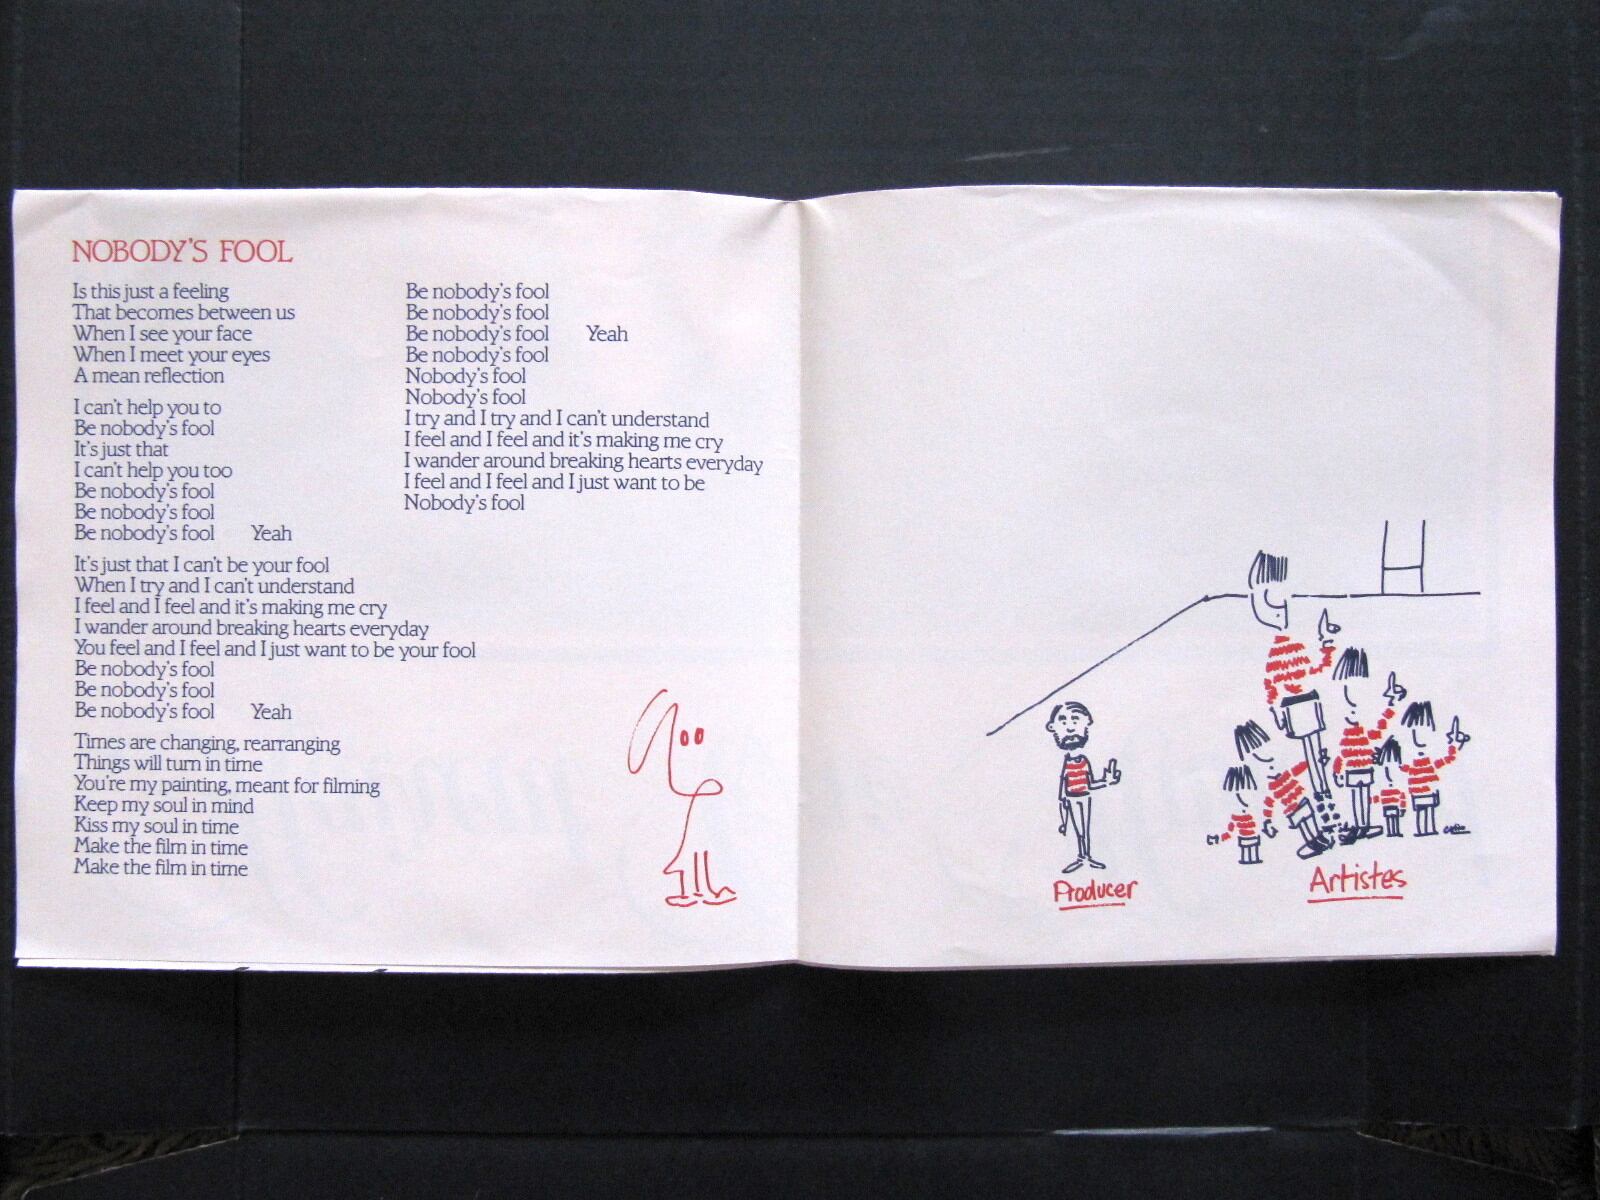 NOBODY'S FOOL
Is this just a feeling
That becomes between us
When I see your face
When I meet your eyes
A mean reflection
I can't help you to
Be nobody's fool
It's just that
I can't help you too
Be nobody's fool
Be nobody's fool
Be nobody's fool Yeah
It's just that I can't be your fool
When I try and I can't understand
I feel and I feel and it's making me cry
I wander around breaking hearts everyday
You feel and I feel and I just want to be your fool
Be nobody's fool
Be nobody's fool
Be nobody's fool Yeah
Times are changing, rearranging
Things will turn in time
You're my painting, meant for filming
Keep my soul in mind
Kiss my soul in time
Make the film in time
Make the film in time
Be nobody's fool
Be nobody's fool
Be nobody's fool Yeah
Be nobody's fool
Nobody's fool
Nobody's fool
I try and I try and I can't understand
I feel and I feel and it's making me cry
I wander around breaking hearts everyday
I feel and I feel and I just want to be
Nobody's fool
Producer
Artistes